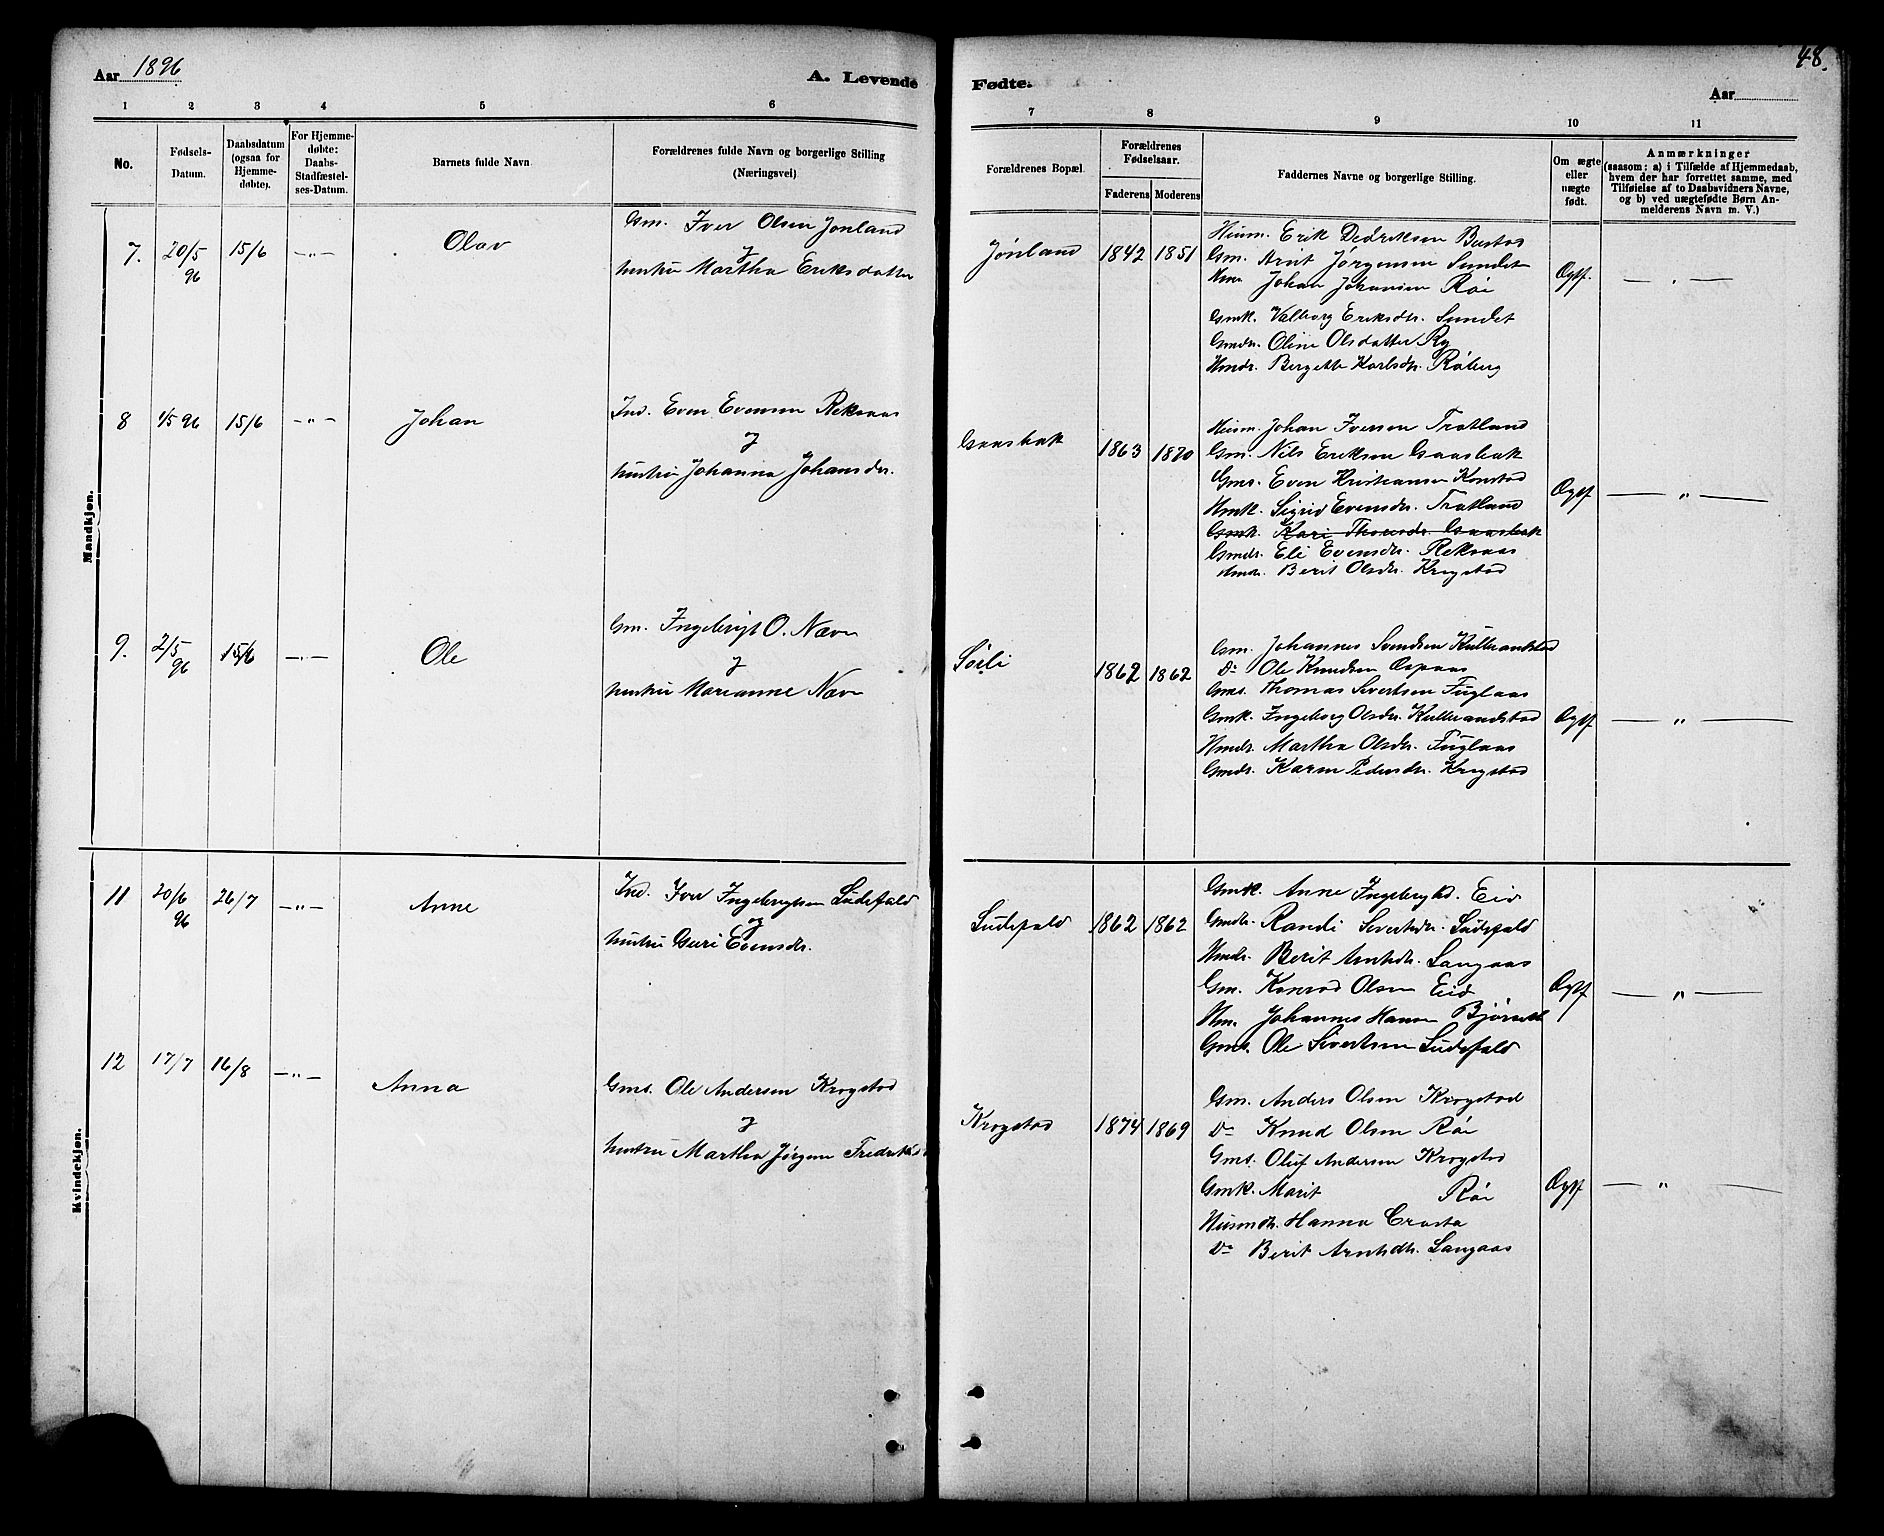 Aar 1896
A. Levende
Fødte.
Aar
48.
1 2 3 4 5 6 7 8 9 10 11
No.
Fødsels-
Datum.
Daabsdatum
(ogsaa for
Hjemme-
døbte).
For Hjemme-
døbte:
Daabs-
Stadfæstel-
ses-Datum.
Barnets fulde Navn
Forældrenes fulde Navn og borgerlige Stilling
(Næringsvei)
Forældrenes Bopæl.
Forældrenes
Fødselsaar.
Faderens Moderens
Faddernes Navne og borgerlige Stilling.
Om ægte
eller
uægte
født.
Anmærkninger
(saasom: a) i Tilfælde af Hjemmedaab,
hvem der har forrettet samme, med
Tilføielse af to Daabsvidners Navne,
og b) ved uægtefødte Børn An-
melderens Navn m. V.)
Mandkjøn.
7. 20/5 96 15/6 —"— Olav
Gm. Iver Olsen Jonland
og
hustru Martha Eriksdatter
Jönland 1842 1851
Husm. Erik Dedriksen Bustad
Gm. Arnt Jørgensen Sundet
Johan Johansen Röe
Gmk. Valborg Eriksdtr. Sundet
Gmdr. Oline Olsdatter Ry
Hmdr. Bergette Karlsdtr. Röberg
Ægtf. — " —
8 1/5 96 15/6 —"— Johan
Ind. Even Evensen Reksaas
og
hustru Johanna Johansdr.
Gaasbak 1863 1870
Husm. Johan Iversen Tratland
Gm. Nils Eriksen Gaasbak
Gms. Even Kristiansen Konstad
Hmk. Sigrid Evensdr. Tratland
Gmk. Kari Thoresdr. Gaasbak
Gmdr. Eli Evensdr. Reksaas
Hmdr. Berit Olsdr. Krogstad
Ægtf — " —
9. 2/5 96 15/6 —"— Ole
Gm. Ingebrigt O. Næve
og
hustru Marianne Næve
Sörli 1862 1862
Gm. Johannes Svendsen Kulbrandstad
Do Ole Knudsen Ospaas
Gms. Thomas Sivertsen Fuglaas
Gmk. Ingeborg Olsdr. Kulbrandstad
Hmdr. Martha Olsdr. Fuglaas
Gmdr. Karen Pedersdr. Krogstad
Ægtf — " —
Kvindekjøn.
11 20/6 96 26/7 —"— Anne
Ind. Iver Ingebrigtsen Ludefald
og
hustru Guri Evensdr.
Ludefald 1862 1862
Gmk. Anne Ingebrigtsd. Eid
Gmdtr. Randi Sivertsdr. Ludefald
Hmdr. Berit Arntsdr. Langaas
Gm. Konrad Olsen Eid
Hm. Johannes Hansen
Ole Sivertsen Ludefald
Ægtf — " —
12 17/7 16/8 —"— Anna
Gms. Ole Andersen Krogstad
og
hustru Martha Jørgine
Krogstad 1874 1869
Gm. Anders Olsen Krogstad
Do Knud Olsen Röe
Gms. Oluf Andersen Krogstad
Gmk. Marit Röe
Husmdtr. Hanna
Do Berit Arntsdtr. Langaas
Ægtf — " —